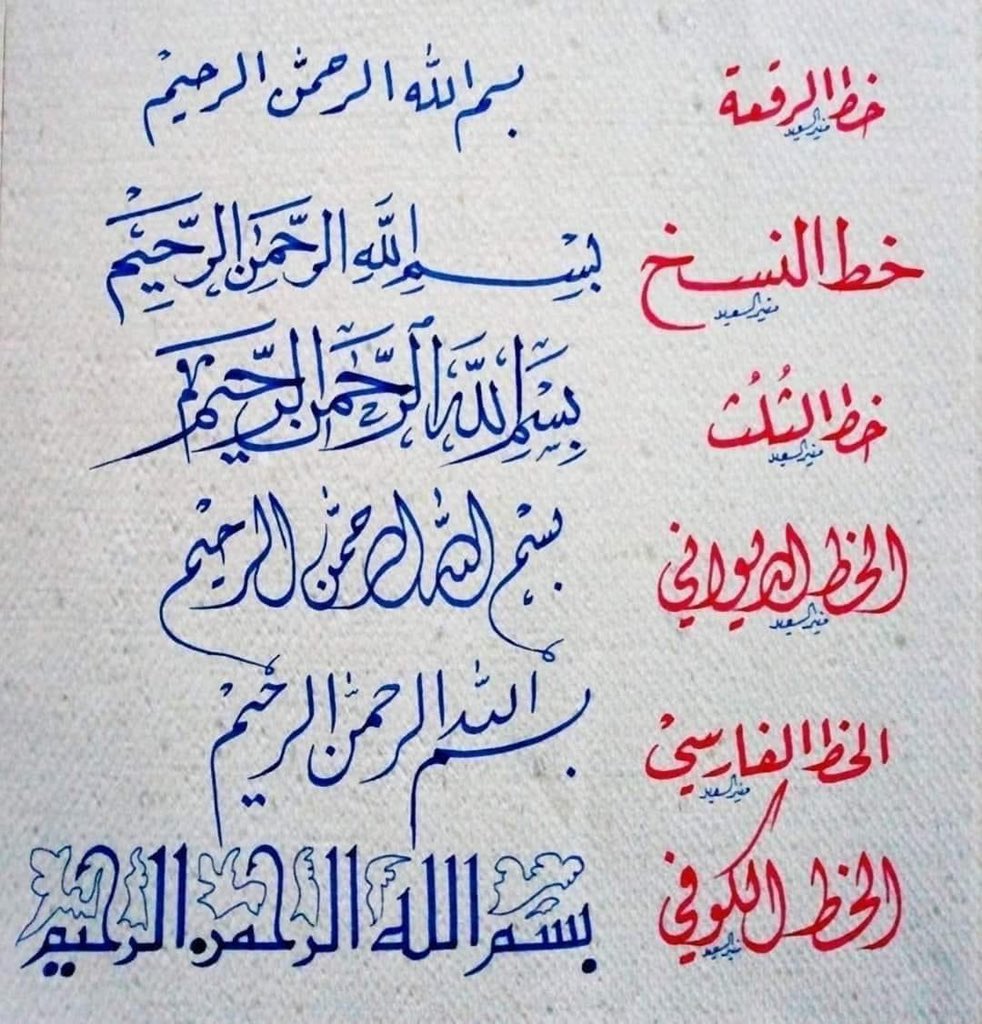 خط الرقعة بسم الله الرحمن الرحيم
منير السعيد
خط النسخ بِسْمِ اللَّهِ الرَّحْمٰنِ الرَّحِيْمِ
منير السعيد
خط الثُلُث بِسْمِ اللَّهِ الرَّحْمٰنِ الرَّحِيْمِ
منير السعيد
الخط الديواني بسم الله الرحمن الرحيم
منير السعيد
الخط الفارسي بسم الله الرحمن الرحيم
منير السعيد
الخط الكوفي بسم الله الرحمن الرحيم
منير السعيد